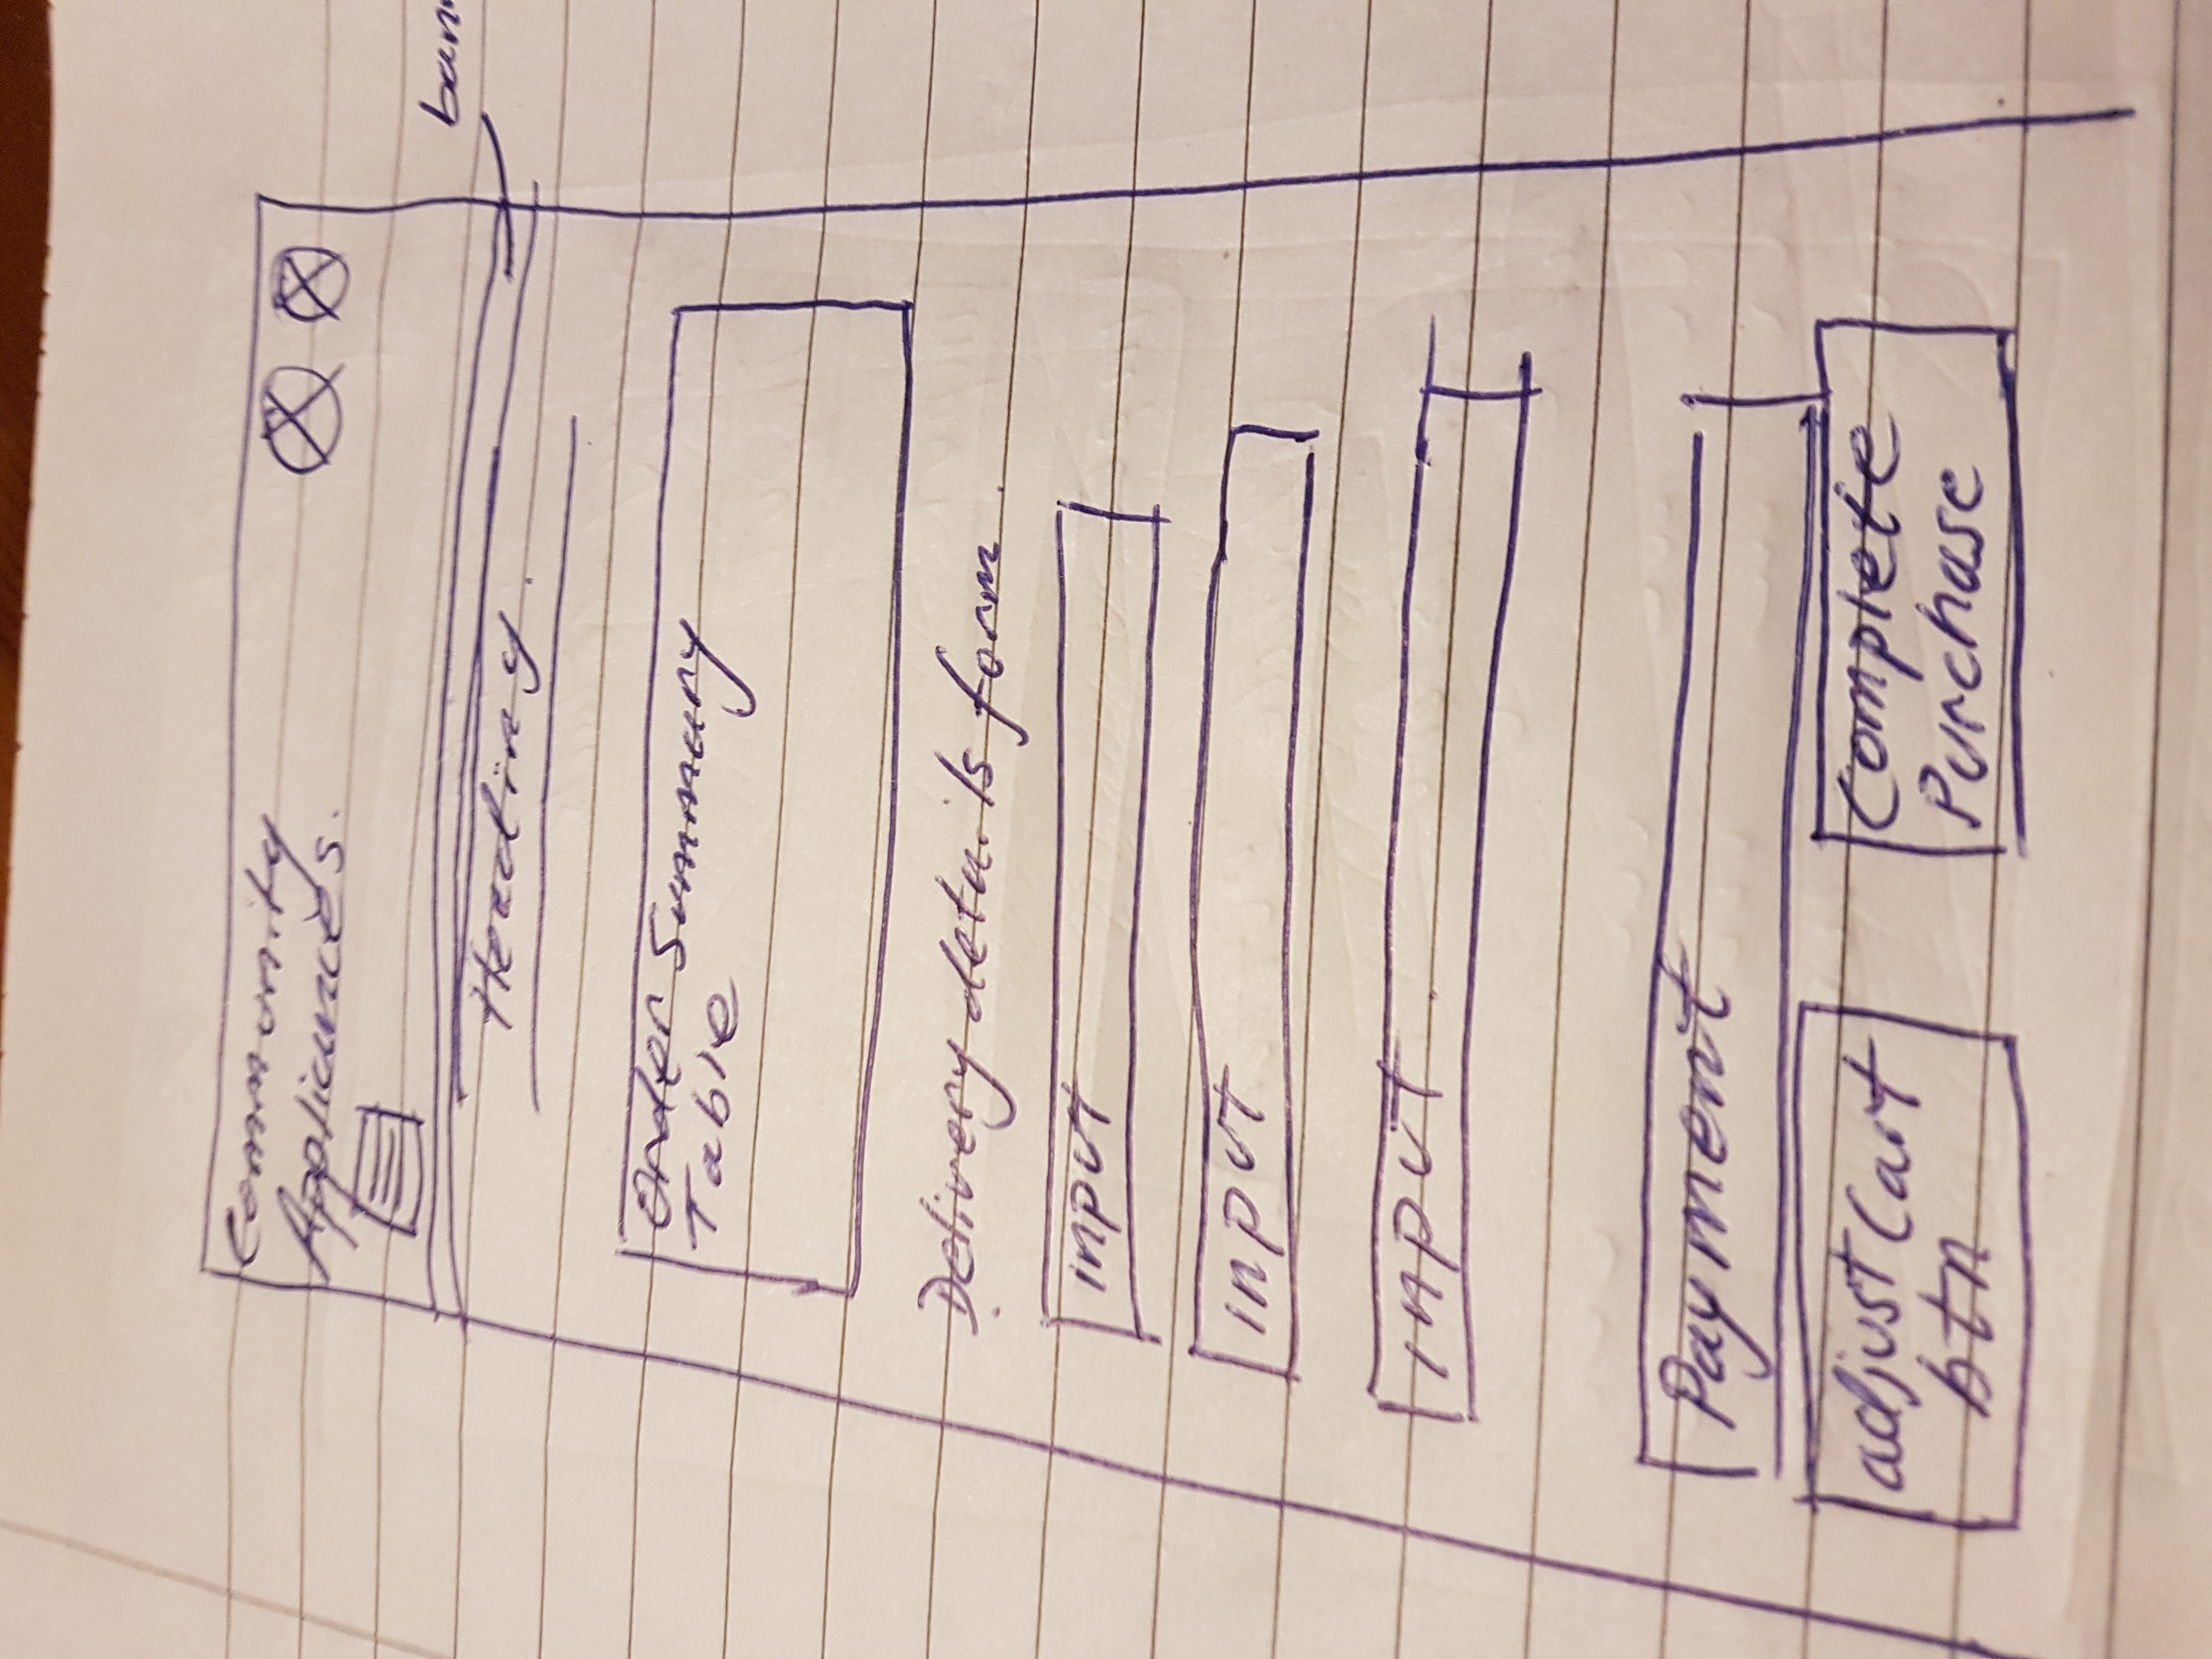 Community
Appliances.
Heading.
Order Summary
Table
Delivery details form.
input
input
input.
Payment
adjust Cart
btn
Complete
Purchase